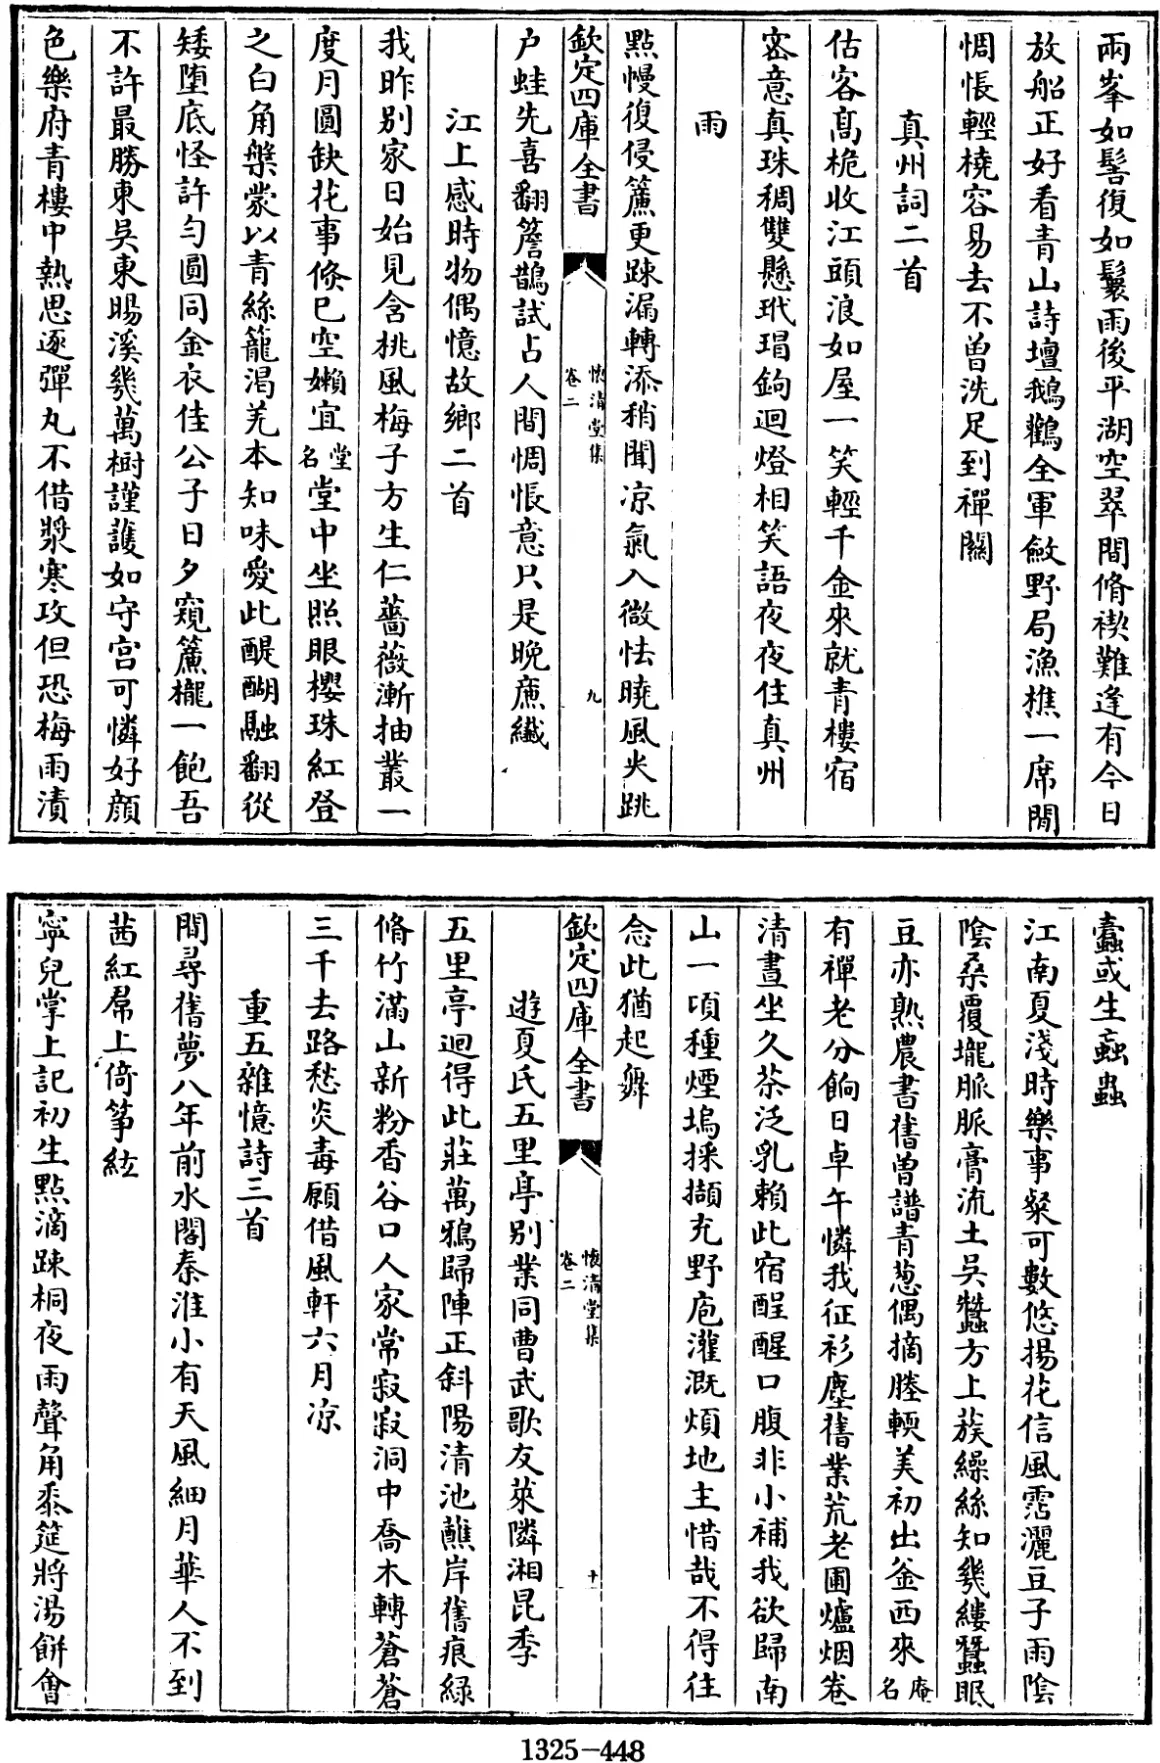 兩峯如髻復如鬟雨後平湖空翠間脩禊難逢有今日
放船正好看青山詩壇鵝鸛全軍斂野局漁樵一席閒
惆悵輕橈容易去不曾洗足到禪關
真州詞二首
估客髙桅收江頭浪如屋一笑輕千金來就青樓宿
宻意真珠稠雙懸玳瑁鉤迴燈相笑語夜夜住真州
雨
點慢復侵簾更踈漏轉添稍聞凉氣入微怯曉風尖跳
户蛙先喜翻簷鵲試占人間惆悵意只是晚㢘纎
欽定四庫全書
懷清堂集
卷二
九
江上感時物偶憶故鄉二首
我昨别家日始見含桃風梅子方生仁薔薇漸抽叢一
度月圓缺花事倐已空嬾宜堂名堂中坐照眼櫻珠紅登
之白角槃蒙以青絲籠渴羌本知味愛此醍醐融翻從
矮墮底怪許勻圓同金衣佳公子日夕窺簾櫳一飽吾
不許最勝東吳東暘溪幾萬樹謹護如守宫可憐好顔
色樂府青樓中熱思逐彈丸不借漿寒攻但恐梅雨漬
蠧或生蝨蟲
江南夏淺時樂事粲可數悠揚花信風霑灑豆子雨陰
陰桑覆壠脈脈膏流土吳蠶方上蔟繰絲知幾縷蠶眠
豆亦熟農書舊曽譜青葱偶摘媵輭美初出釜西來庵名
有禪老分餉日卓午憐我征衫塵舊業荒老圃爐烟卷
清晝坐久茶泛乳賴此宿酲醒口腹非小補我欲歸南
山一頃種煙塢採擷充野庖灌溉煩地主惜哉不得往
念此猶起舞
欽定四庫全書
懷清堂集
卷二
十
遊夏氏五里亭别業同曹武歌友萊隣湘昆季
五里亭迴得此莊萬鴉歸陣正斜陽清池蘸岸舊痕綠
脩竹滿山新粉香谷口人家常寂寂洞中喬木轉蒼蒼
三千去路愁炎毒願借風軒六月凉
重五雜憶詩三首
間尋舊夢八年前水閣秦淮小有天風細月華人不到
茜紅屏上倚筝絃
寧兒掌上記初生點滴踈桐夜雨聲角黍筵將湯餅會
1325-448